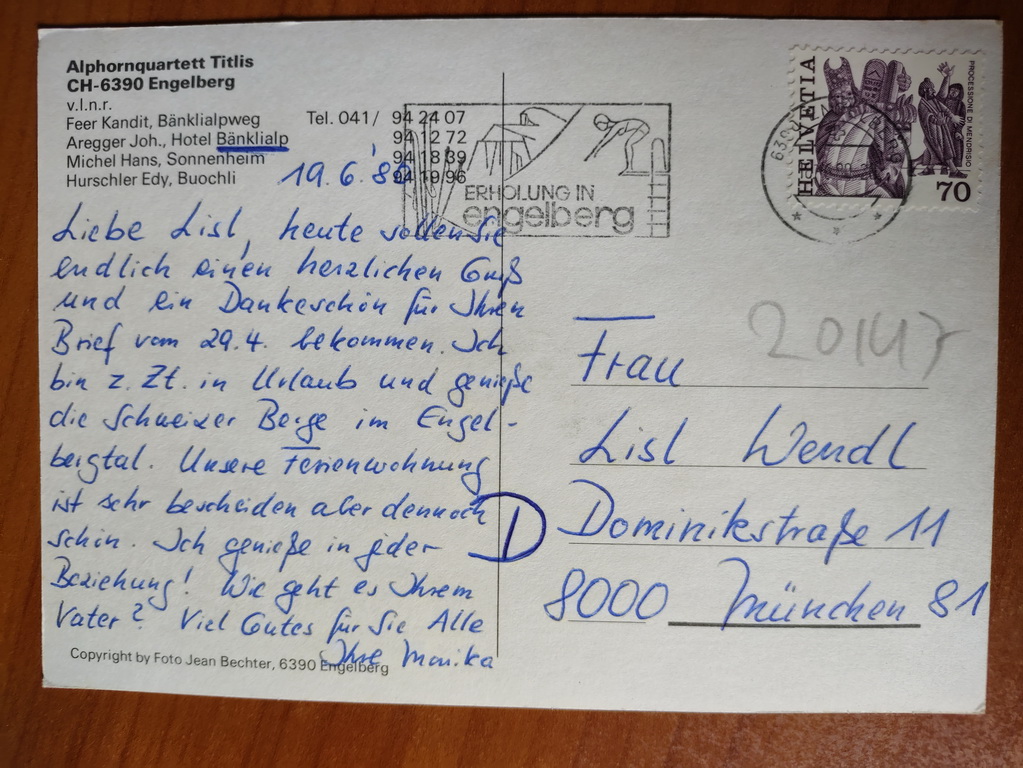 Alphornquartett Titlis
CH-6390 Engelberg
v.l.n.r.
Feer Kandit, Bänklialpweg Tel. 041/ 94 24 07
Aregger Joh., Hotel Bänklialp 94 12 72
Michel Hans, Sonnenheim 94 18 39
Hurschler Edy, Buochli 94 19 96
ERHOLUNG IN
engelberg
HELVETIA
PROCESSIONE DI MENDRISIO
70
19.6.'86
Liebe Lisl, heute sollen Sie
endlich einen herzlichen Gruß
und ein Dankeschön für Ihren
Brief vom 29.4. bekommen. Ich
bin z. Zt. in Urlaub und genieße
die Schweizer Berge im Engel-
bergtal. Unsere Ferienwohnung
ist sehr bescheiden aber dennoch
schön. Ich genieße in jeder
Beziehung! Wie geht es Ihrem
Vater? Viel Gutes für Sie Alle
Ihre Monika
Copyright by Foto Jean Bechter, 6390 Engelberg
20147
Frau
Lisl Wendl
D Dominikstraße 11
8000 München 81